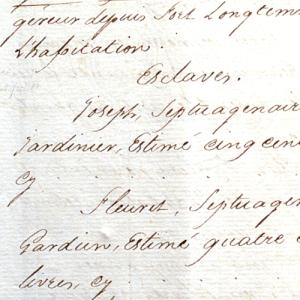 géreur depuis Fort Longtems
L'habitation.
Esclaves.
Joseph, Septuagenair
Jardinier, Estimé cinq cen
cy
Fleurit, Septuagen
Gardien, Estimé quatre c
livres, cy